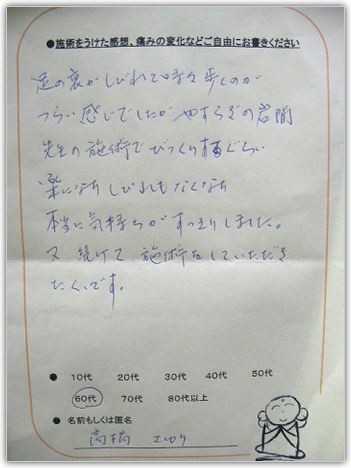 ●施術をうけた感想、痛みの変化などご自由にお書きください
足の裏がしびれて時々歩くのが
つらい感じでしたがやすらぎの岩間
先生の施術でびっくりするぐらい
楽になりしびれもなくなり
本当に気持ちがすっきりしました。
又、続けて施術をしていただき
たいです。
● 10代 20代 30代 40代 50代
60代 70代 80代以上
● 名前もしくは匿名
高橋